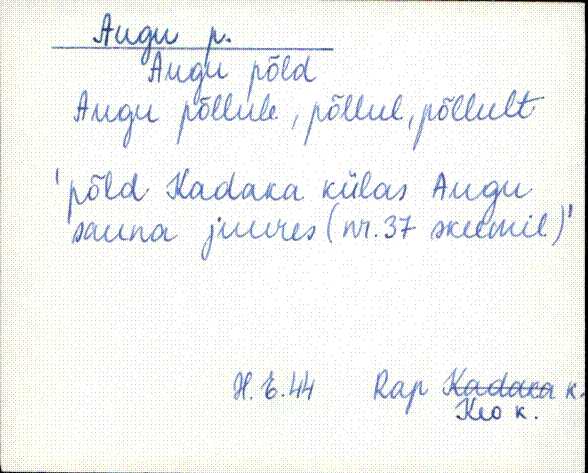 Augu p.
Augu põld
Augu põllule, põllul, põllult
'põld Kadaka külas Augu
sauna juures (nr. 37 skeemil)'
H. E. 44 Rap Kadaka k.
Keo k.